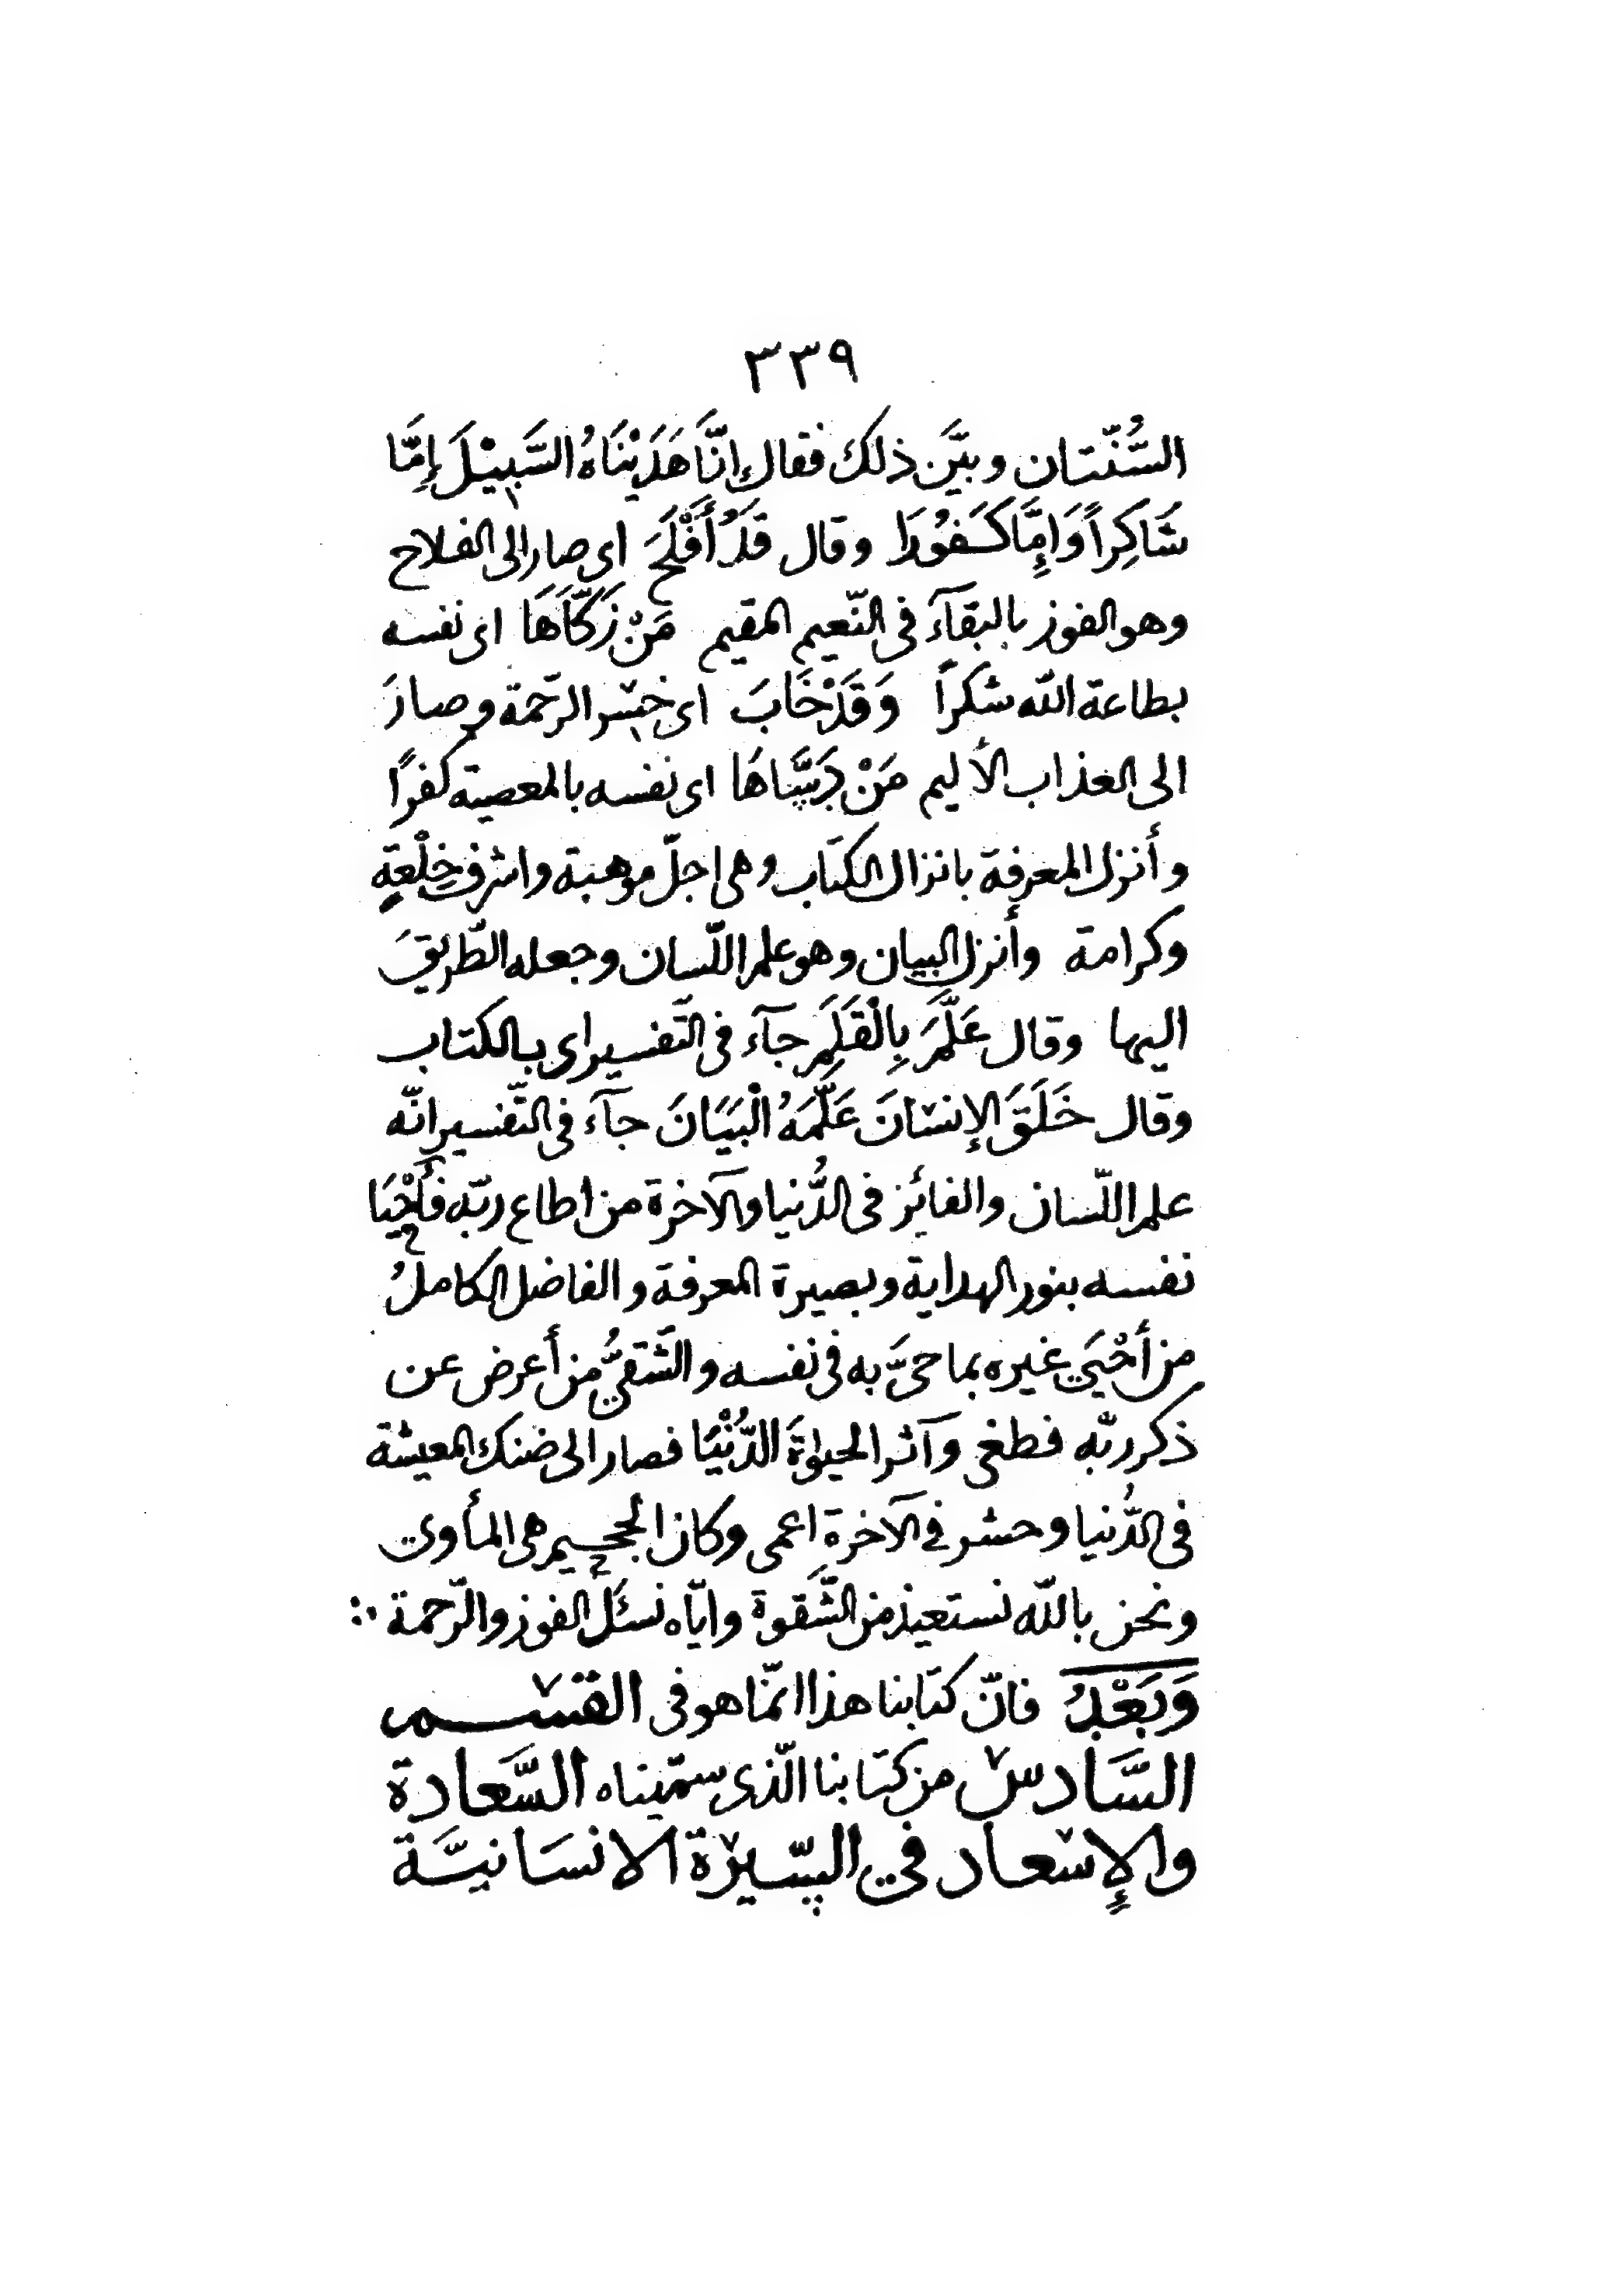 ٣٣٩
السُّنّتان وبيَّن ذلك فقال إنَّا هَدَيْنَاهُ السَّبِيْلَ إِمَّا
شَاكِراً وَإِمَّا كَفُوْرَا وقال قَدْ أَفْلَحَ اى صار الى الفلاح
وهو الفوز بالبقآء فى النّعيم المقيم مَنْ زَكَّاهَا اى نفسه
بطاعة الله شكراً وَقَدْ خَابَ اى خسر الرّحمة وصارَ
الى العذاب الأليم مَنْ دَسَّاهَا اى نفسه بالمعصية كفرًا
وأنزل المعرفة بانزال الكتاب وهى اجلّ موهبة واشرف خِلْعَةٍ
وكرامة وأنزل البيان وهو علم اللّسان وجعله الطّريقَ
اليها وقال عَلَّمَ بِالْقَلَمِ جآء فى التّفسير اى بالكتاب
وقال خَلَقَ الإنسَانَ عَلَّمَهُ الْبَيَانَ جآء فى التّفسير انّه
علم اللّسان والفائز فى الدُّنيا والآخرة من اطاع ربّه فأَحْيَا
نفسه بنور الهداية وبصيرة المعرفة والفاضل الكاملُ
من أَحْيَي غيره بما حىَّ به فى نفسه والشّقيُّ من أعرض عن
ذكر ربّه فطغى وآثر الحيوةَ الدُّنْيَا فصار الى ضنك المعيشة
فى الدُّنيا وحشر فى الآخرة اعمى وكان الجحيم هى المأوى
ونحن بالله نستعيذ من الشَّقوة وايّاه نسئَل الفوز والرّحمة ؞
وَبَعْدُ فانّ كتابنا هذا انّما هو فى القسم
السَّادس من كتابنا الّذى سمّيناه السَّعادة
والإسعاد في السّيرة الانسَانيَّة